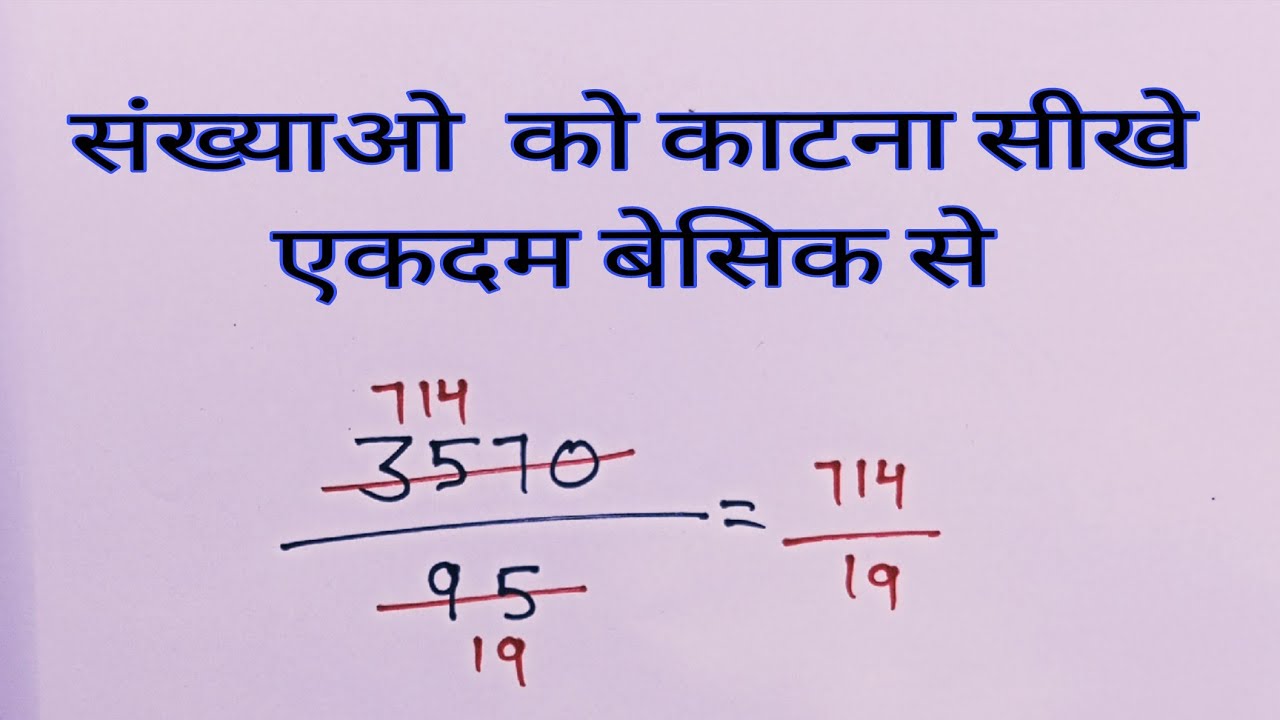 संख्याओ को काटना सीखे
एकदम बेसिक से
714
3570
95
19
=
714
19